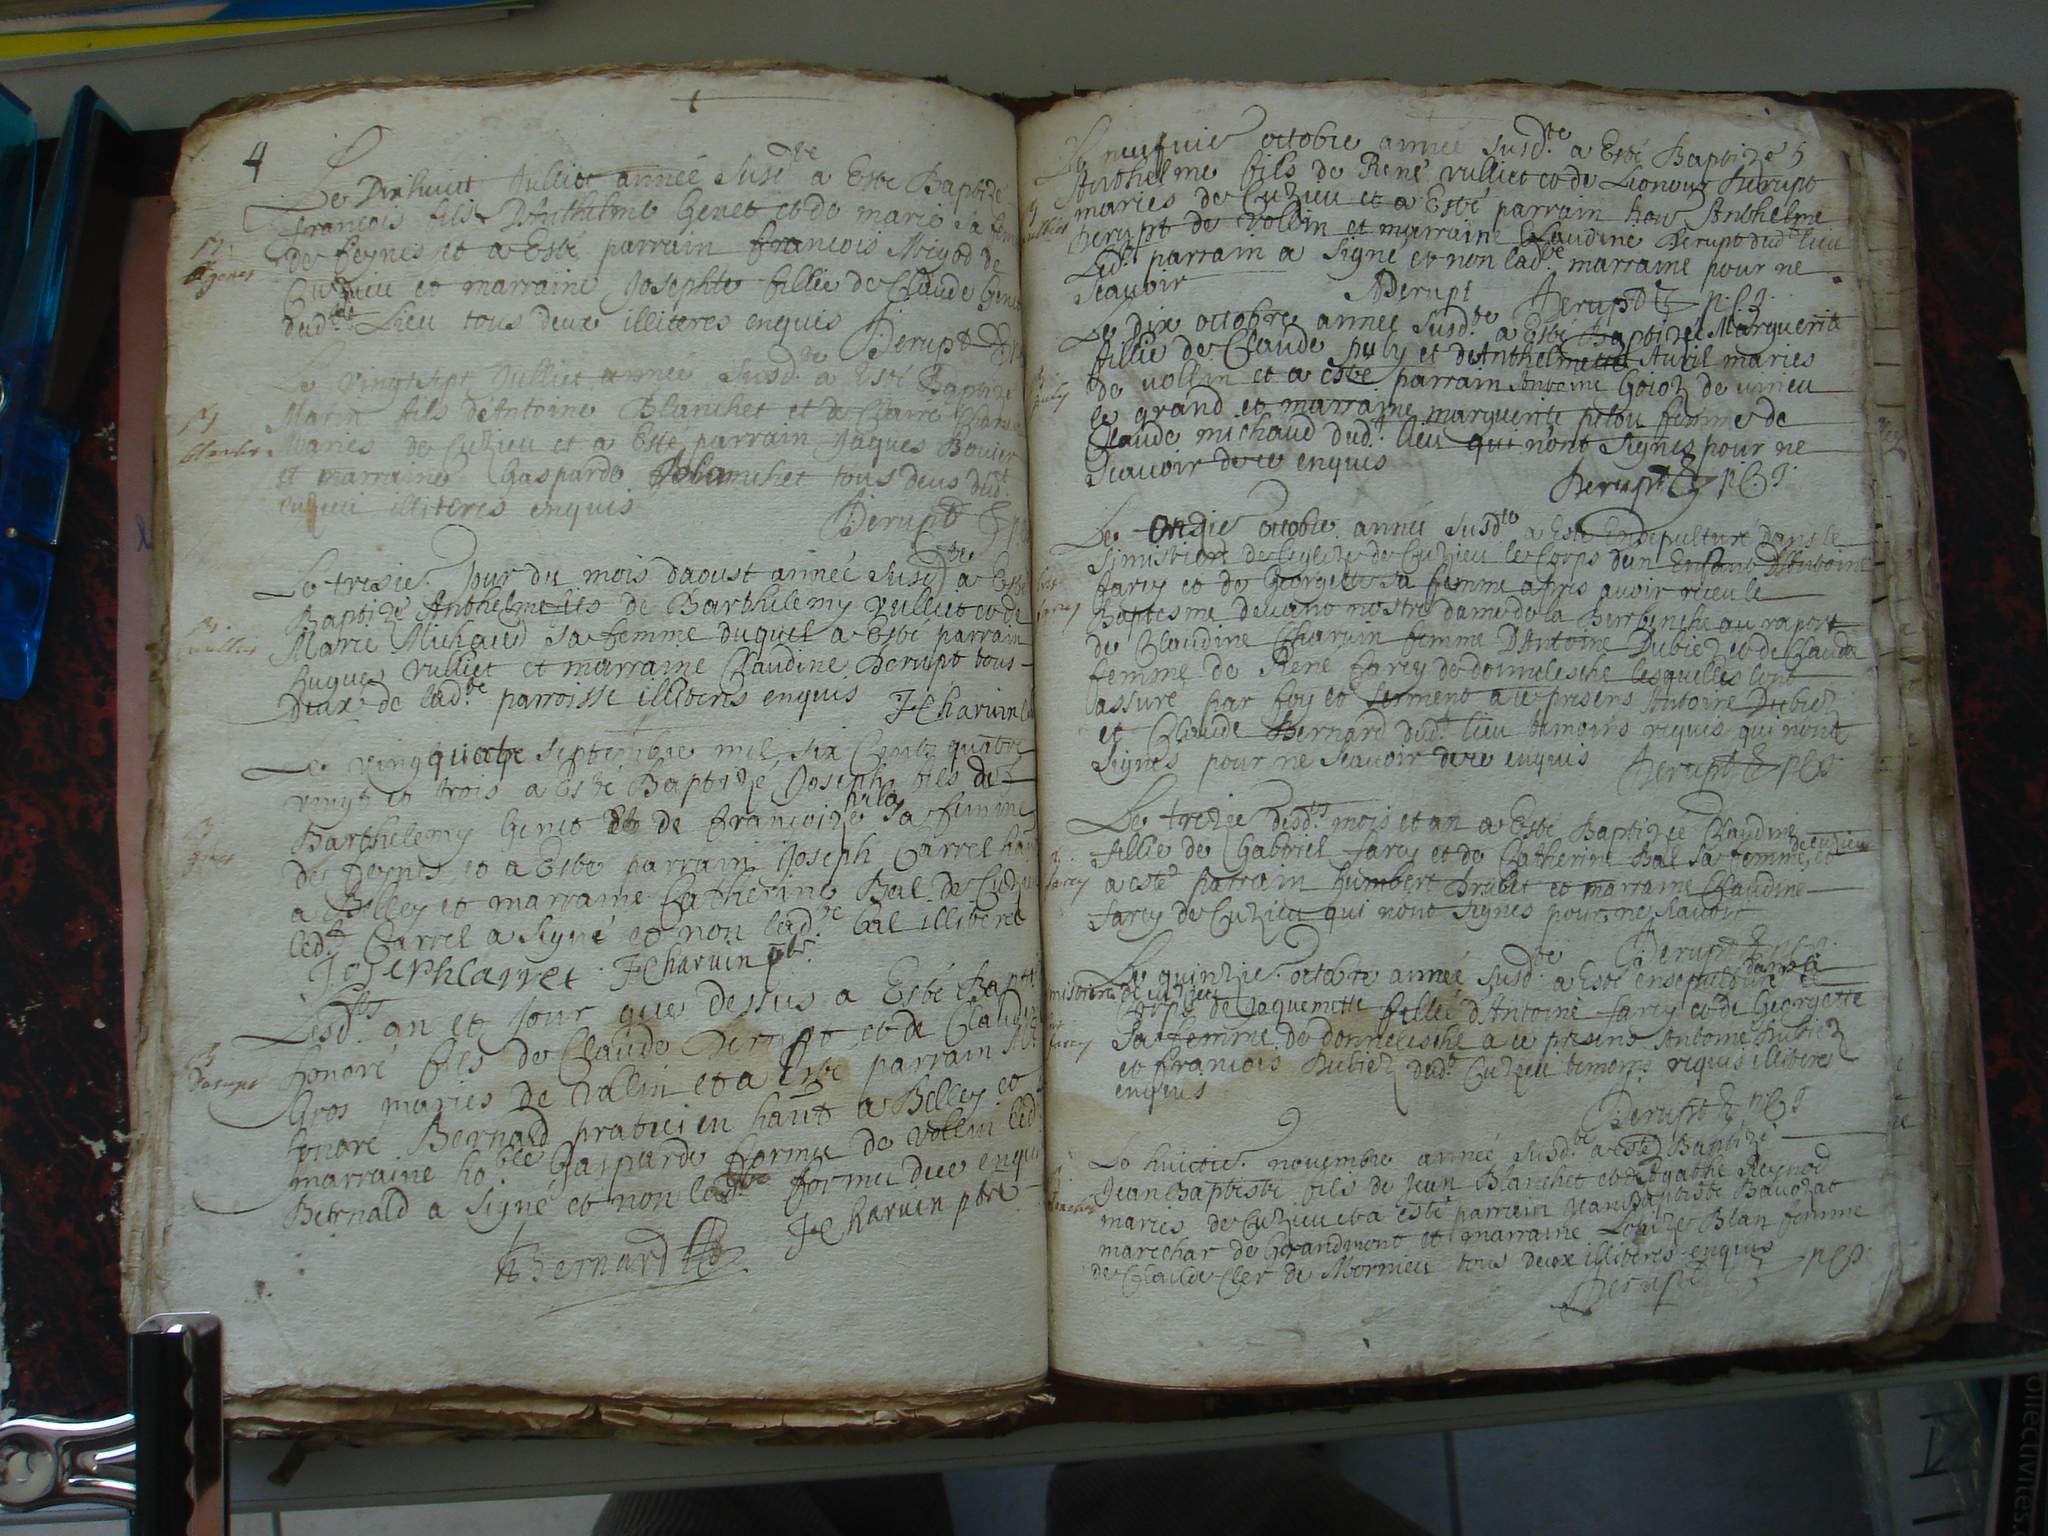 4
Le Dixhuict Julliet année susd.te a Esté Baptizé
francois fils Danthelme Genet et de marie sa fem
de feynes et a Esté parrain francois Migod de
Cuzieu et marraine Josephte fillie de Claude Genet
dud.t Lieu tous deux illiteres enquis Derupt
B. Genet
Le vingt sept Julliet année susd.te a Esté Baptizé
Marin fils dAntoine Blanchet et de Claire
Maries de Cuzieu et a Esté parrain Jaques Bouier
et marraine Gasparde Blanchet tous deus dud.t
Cuzieu illiteres enquis
Derupt
Le tresie. Jour du mois daoust année susd.te a Esté
Baptizé Anthelme fils de Barthelemy vulliet et de
Marie Michaud sa femme duquel a Esté parrain
hugues vulliet et marraine Claudine Derupt tous
Deux de lad.te parroisse illiteres enquis J Charvin
B. vulliet
Le ving quatre septembre mil six Cents quatre
vingt et trois a Esté Baptizé Joseph fils de
Barthelemy Genet Et de francoize sa femme
de feynes et a Esté parrain Joseph Carrel
a Belley et marraine Catherine Bal de Cuzieu
led.t Carrel a signé et non lad.te bal illiteree
Joseph Carrel J Charvin pbre
B. Genet
Lesd.ts an et Jour que dessus a Esté Bapti
honoré fils de Claude Derupt et de Claudine
Gros maries de vollin et a Esté parrain Sr
honoré Bernard praticien hant a Belley et
marraine ho.ble Gasparde forme de vollin led.
Bernard a signé et non lad.te forme dece enquis
H Bernard J Charvin pbre
B Derupt
Le neufuie octobre année susd.te a Esté Baptizé 5
Anthelme fils de René vulliet et de Lionour Derupt
maries de Cuzieu et a Esté parrain hon. Anthelme
Derupt de vollin et marraine Claudine Derupt dud.t lieu
Led.t parrain a signé et non lad.te marraine pour ne
scauoir ADerupt Derupt p.C.J.
Le dix octobre année susd.te a Esté Baptizée Marguerite
fillie de Claude puly et dAnthelmette Auril maries
de vollin et a esté parrain Antoine Goioz de virieu
le grand et marraine marguerite pelou femme de
Claude michaud dud.t lieu qui nont signes pour ne
scauoir de ce enquis
Derupt p.C.J.
B. puly
Le Onzie octobre année susd.te a Esté Ensepulturé dans le
Simistiere de lEglize de Cuzieu le Corps dun Enfant DAntoine
farcy et de Georgette sa femme apres auoir receu le
Baptesme deuant nostre dame de la au raport
de Claudine Charvin femme DAntoine Dubiez et de Clauda
femme de René farcy de donnelesche lesquelles lont
assuré par foy et serment a ce presens Antoine Dubiez
et Claude Bernard dud.t lieu temoins requis qui nont
signes pour ne scauoir de ce enquis Derupt p.C.J.
farcy
Le trezie desd.ts mois et an a Esté Baptizée Claudine
fillie de Gabriel farcy et de Catherine Bal sa femme de cuzieu et
a esté parrain humbert et marraine Claudine
farcy de Cuzieu qui nont signes pour ne scauoir
Derupt p.C.J.
B. farcy
Le quinzie. octobre année susd.te a Esté ensepulturé dans le
misitiere de cuzieu le
Corps de Jaquemette fillie dAntoine farcy et de Georgette
sa femme de donnelesche a ce presens Antoine Dubiez
et francois Dubiez dud.t Cuzieu temoins requis illiteres
enquis
Derupt p.C.J.
farcy
Le huictie. novembre année susd.te a esté Baptizé
Jean Baptiste fils de Jean Blanchet et dAgathe Reynod
maries de Cuzieu et a esté parrain Jean Baptiste
marechar de Grandmont et marraine Louize Blan femme
de Claude Cler de Mornieu tous deux illiteres enquis
Derupt p.C.J.